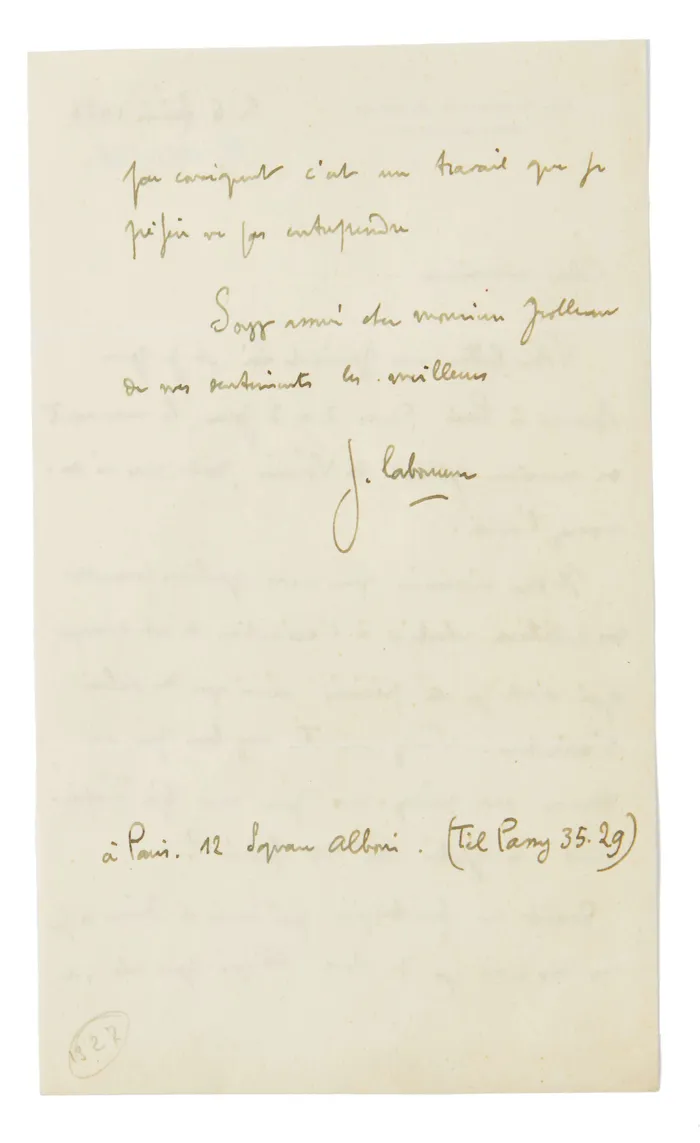 par conséquent c'est un travail que je
préfère ne pas entreprendre
Soyez assuré cher monsieur
de mes sentiments les meilleurs
J. Laboureur
à Paris. 12 Square Alboni. (Tél Passy 35.29)
1922